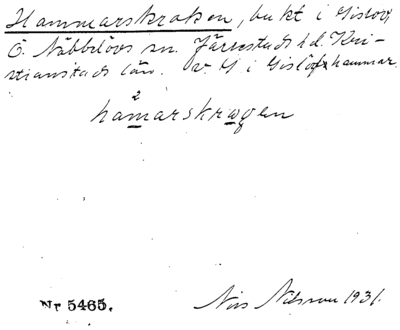 Hammarskroken, bukt i Gislöv,
Ö. Nöbbelövs sn. Järrestads hd. Kri-
stianstads län. v. G i Gislövshammar.
2
hamarskrωgen
Nr 5465.
Nils Nilsson 1931.